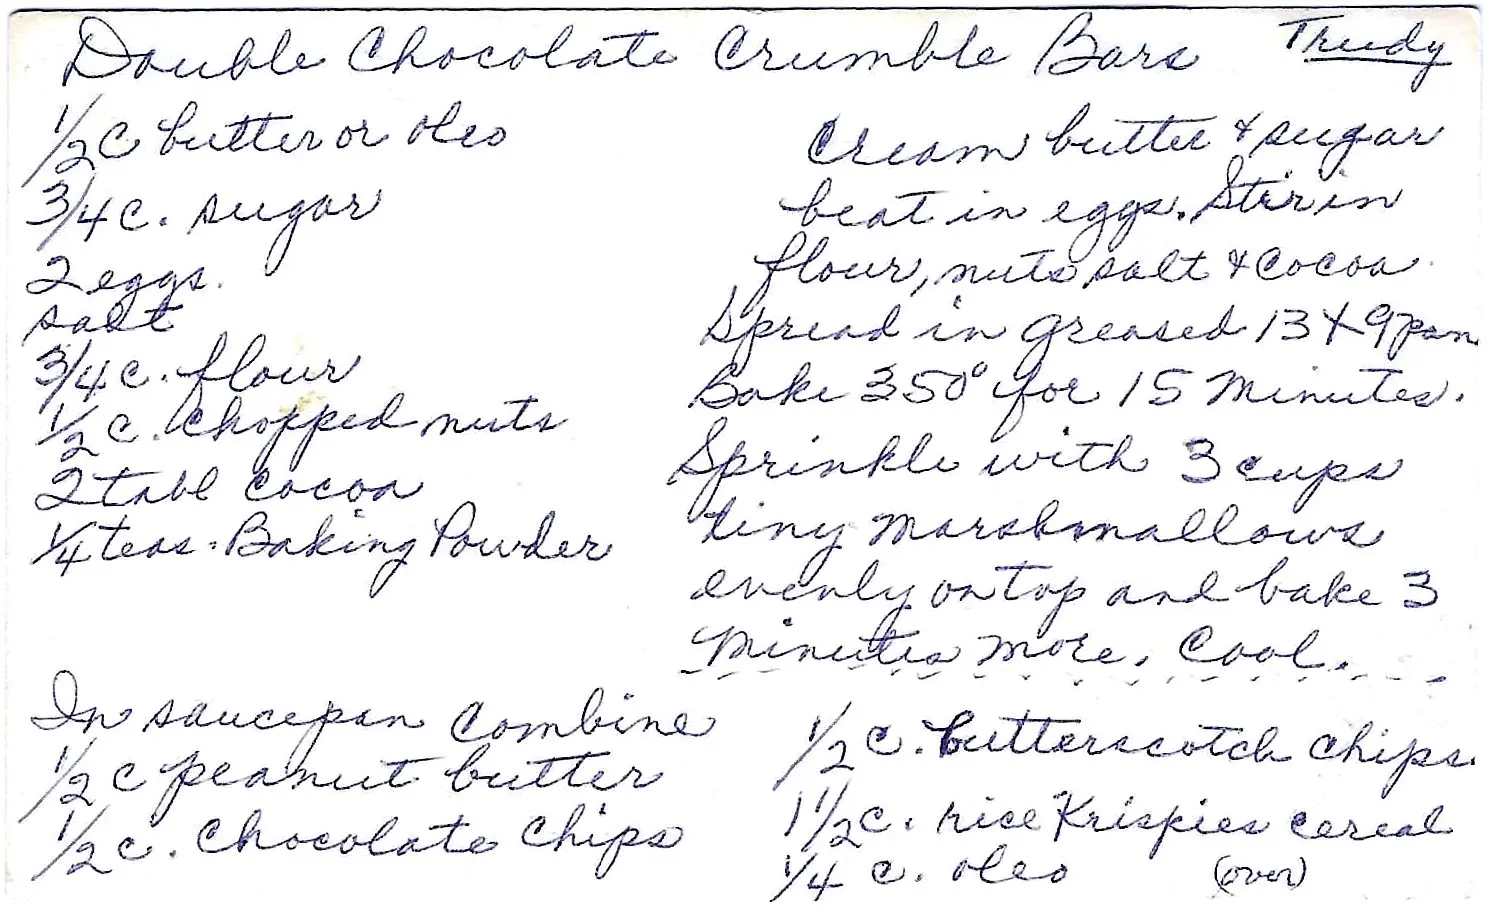 Double Chocolate Crumble Bars Trudy
1/2 C butter or oleo
3/4 c. sugar
2 eggs.
salt
3/4 c. flour
1/2 c. chopped nuts
2 tabl cocoa
1/4 teas. Baking Powder
Cream butter & sugar
beat in eggs. Stir in
flour, nuts salt & cocoa
Spread in greased 13 X 9 pan
Bake 350° for 15 Minutes.
Sprinkle with 3 cups
tiny marshmallows
evenly on top and bake 3
Minutes more. Cool.
In saucepan combine
1/2 c peanut butter
1/2 c. chocolate chips
1/2 c. butterscotch chips.
1 1/2 c. rice Krispies cereal
1/4 c. oleo (over)